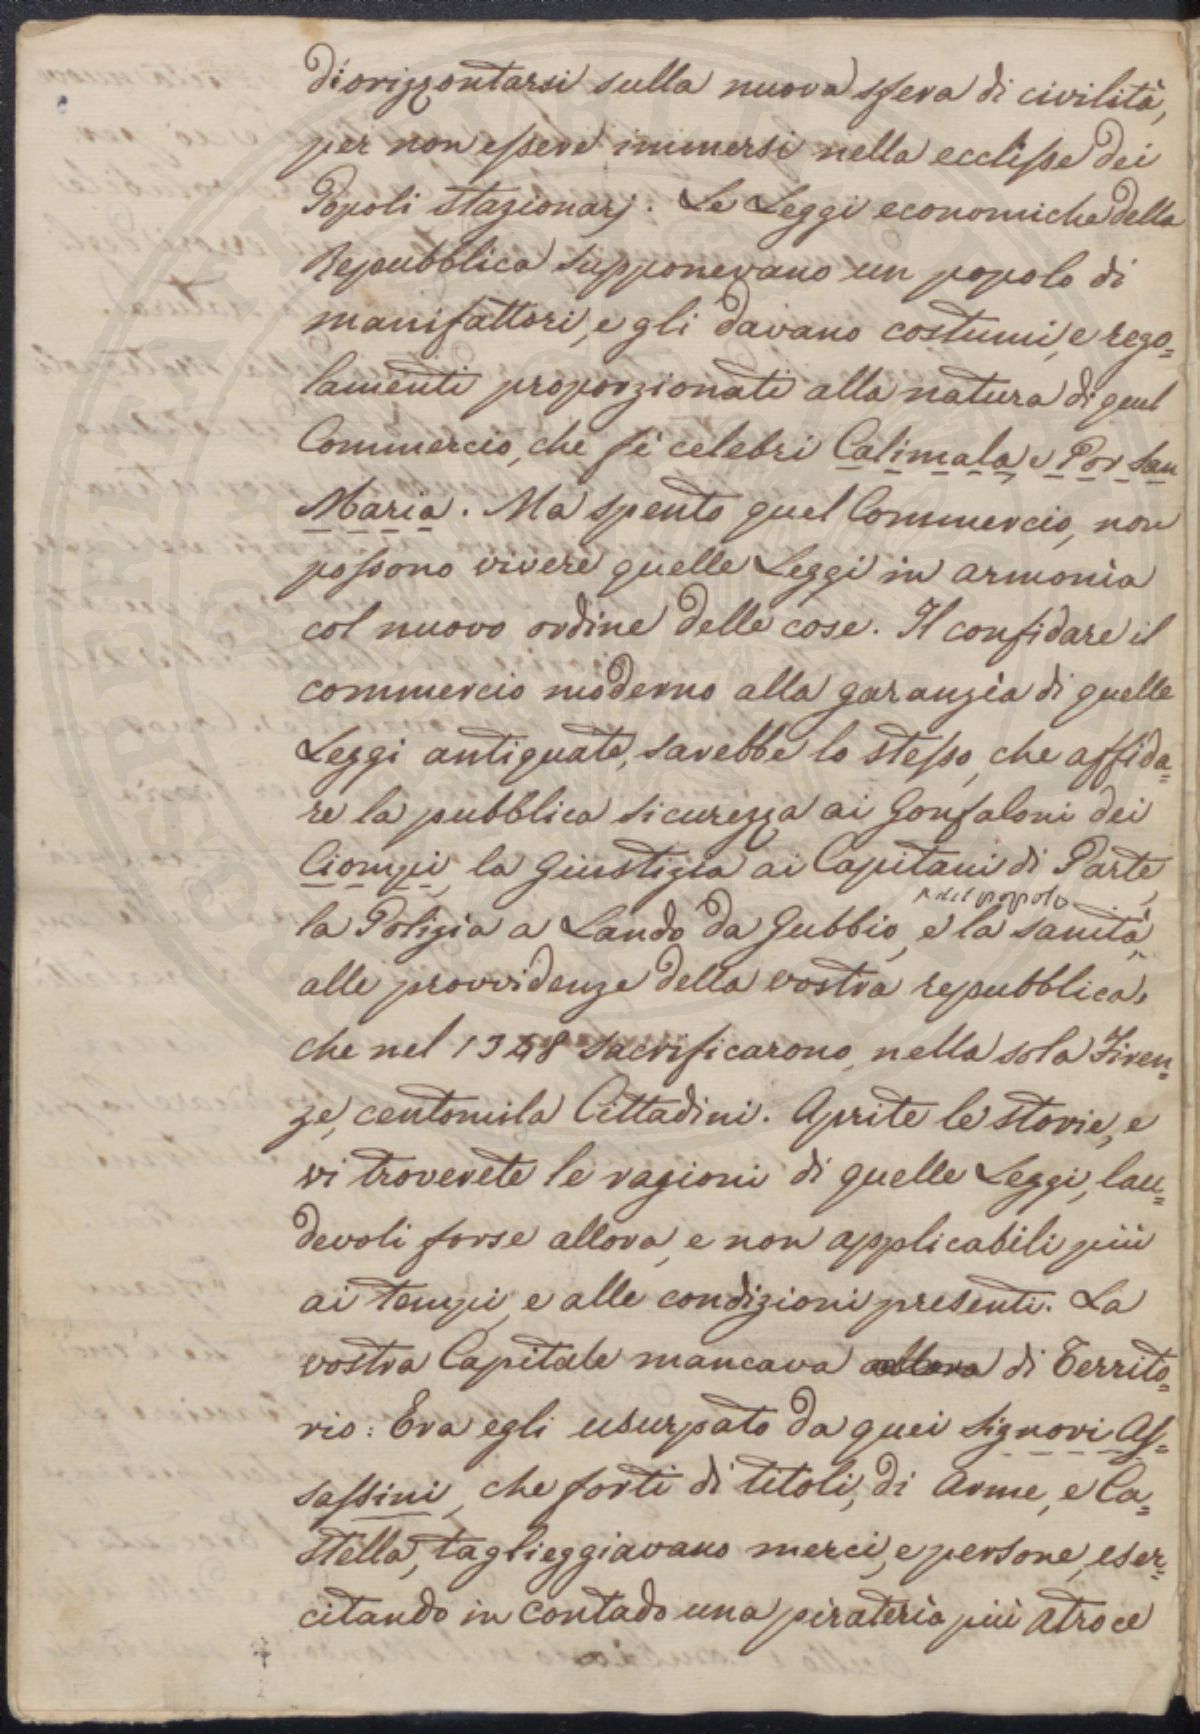 di orizzontarsi sulla nuova sfera di civilità,
per non essere immersi nella ecclisse dei
Popoli stazionarj. Le Leggi economiche della
Repubblica supponevano un popolo di
manifattori, e gli davano costumi, e rego=
lamenti proporzionati alla natura di quel
Commercio, che fè celebri Calimala e Por san
Maria. Ma spento quel Commercio, non
possono vivere quelle Leggi in armonia
col nuovo ordine delle cose. Il confidare il
commercio moderno alla garanzia di quelle
Leggi antiquate, sarebbe lo stesso, che affida=
re la pubblica sicurezza ai Gonfaloni dei
Ciompi, la Giustizia ai Capitani di Parte,
la Polizia a Lando da Gubbio, e la sanità
del popolo
alle provvidenze della vostra repubblica,
che nel 1348 sacrificarono, nella sola Firen=
ze, centomila Cittadini. Aprite le storie, e
vi troverete le ragioni di quelle Leggi, lau=
devoli forse allora, e non applicabili più
ai tempi, e alle condizioni presenti. La
vostra Capitale mancava allora di Territo=
rio: Era egli usurpato da quei Signori As=
sassini, che forti di titoli, di Arme, e Ca=
stella, taglieggiavano merci, e persone, eser=
citando in Contado una pirateria più atroce